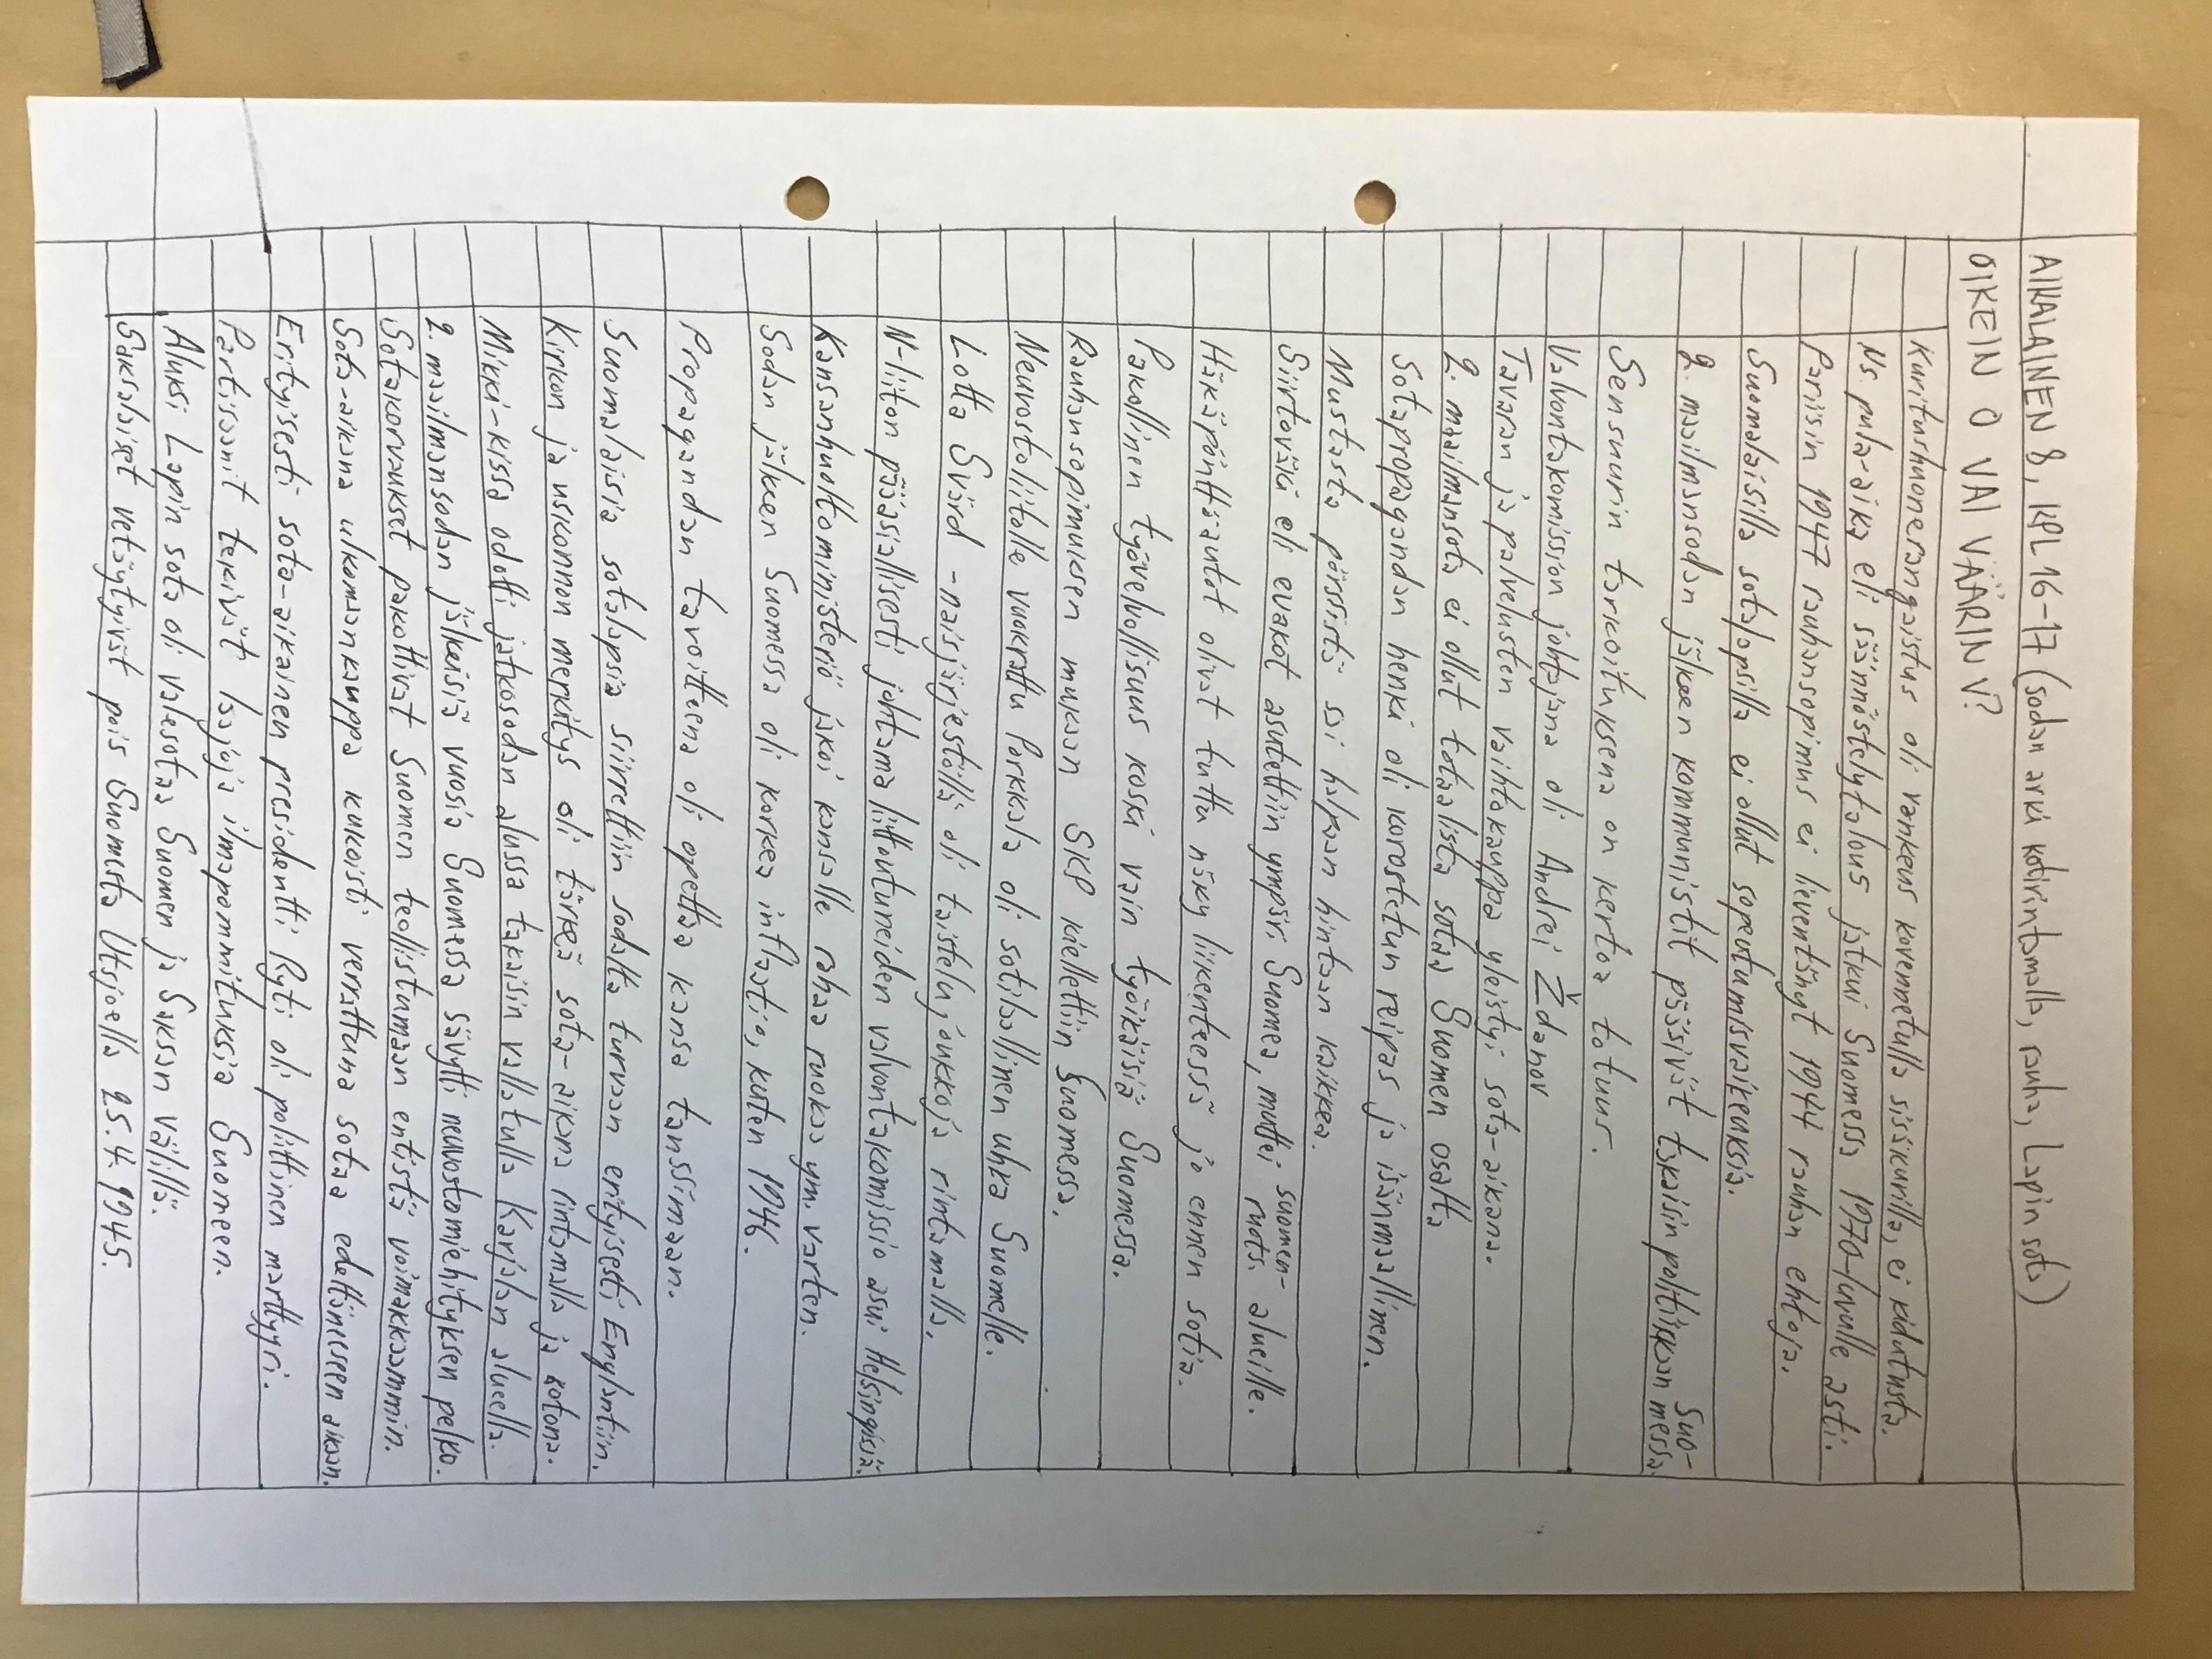 AIKALAINEN 8, KPL 16-17 (sodan arki kotirintamalla, rauha, Lapin sota)
OIKEIN O VAI VÄÄRIN V?
Kuritushuonerangaistus oli vankeus kovennetulla sisäkurilla, ei kidutusta.
Ns. pula-aika eli säännöstelytalous jatkui Suomessa 1970-luvulle asti.
Pariisin 1947 rauhansopimus ei lieventänyt 1944 rauhan ehtoja.
Suomalaisilla sotalapsilla ei ollut sopeutumisvaikeuksia.
2. maailmansodan jälkeen kommunistit pääsivät takaisin politiikkaan Suo-
messa.
Sensuurin tarkoituksena on kertoa totuus.
Valvontakomission johtajana oli Andrei Ždanov
Tavaran ja palvelusten vaihtokauppa yleistyi sota-aikana.
2. maailmansota ei ollut totaalista sotaa Suomen osalta
Sotapropagandan henki oli korostetun reipas ja isänmaallinen.
Mustasta pörssistä sai halpaan hintaan kaikkea.
Siirtoväki eli evakot asutettiin ympäri Suomea, muttei suomen-
ruots. alueille.
Häkäpönttöautot olivat tuttu näky liikenteessä jo ennen sotia.
Pakollinen työvelvollisuus koski vain työikäisiä Suomessa.
Rauhansopimuksen mukaan SKP kiellettiin Suomessa.
Neuvostoliitolle vuokrattu Porkkala oli sotilaallinen uhka Suomelle.
Lotta Svärd -naisjärjestöllä oli taistelujoukkoja rintamalla.
N-liiton pääasiallisesti johtama liittoutuneiden valvontakomissio asui Helsingissä.
Kansanhuoltoministeriö jakoi kansalle rahaa ruokaa ym. varten.
Sodan jälkeen Suomessa oli korkea inflaatio, kuten 1946.
Propagandan tavoitteena oli opettaa kansa tanssimaan.
Suomalaisia sotalapsia siirrettiin sodalta turvaan erityisesti Englantiin.
Kirkon ja uskonnon merkitys oli tärkeä sota-aikana rintamalla ja kotona.
Mikki-kissa odotti jatkosodan alussa takaisin vallatulla Karjalan alueella.
2. maailmansodan jälkeisiä vuosia Suomessa sävytti neuvostomiehityksen pelko.
Sotakorvaukset pakottivat Suomen teollistumaan entistä voimakkaammin.
Sota-aikana ulkomaankauppa kukoisti verrattuna sotaa edeltäneeseen aikaan.
Erityisesti sota-aikainen presidentti Ryti oli poliittinen marttyyri.
Partisaanit tekivät laajoja ilmapommituksia Suomeen.
Aluksi Lapin sota oli valesotaa Suomen ja Saksan välillä.
Saksalaiset vetäytyivät pois Suomesta Utsjoella 25.4.1945.